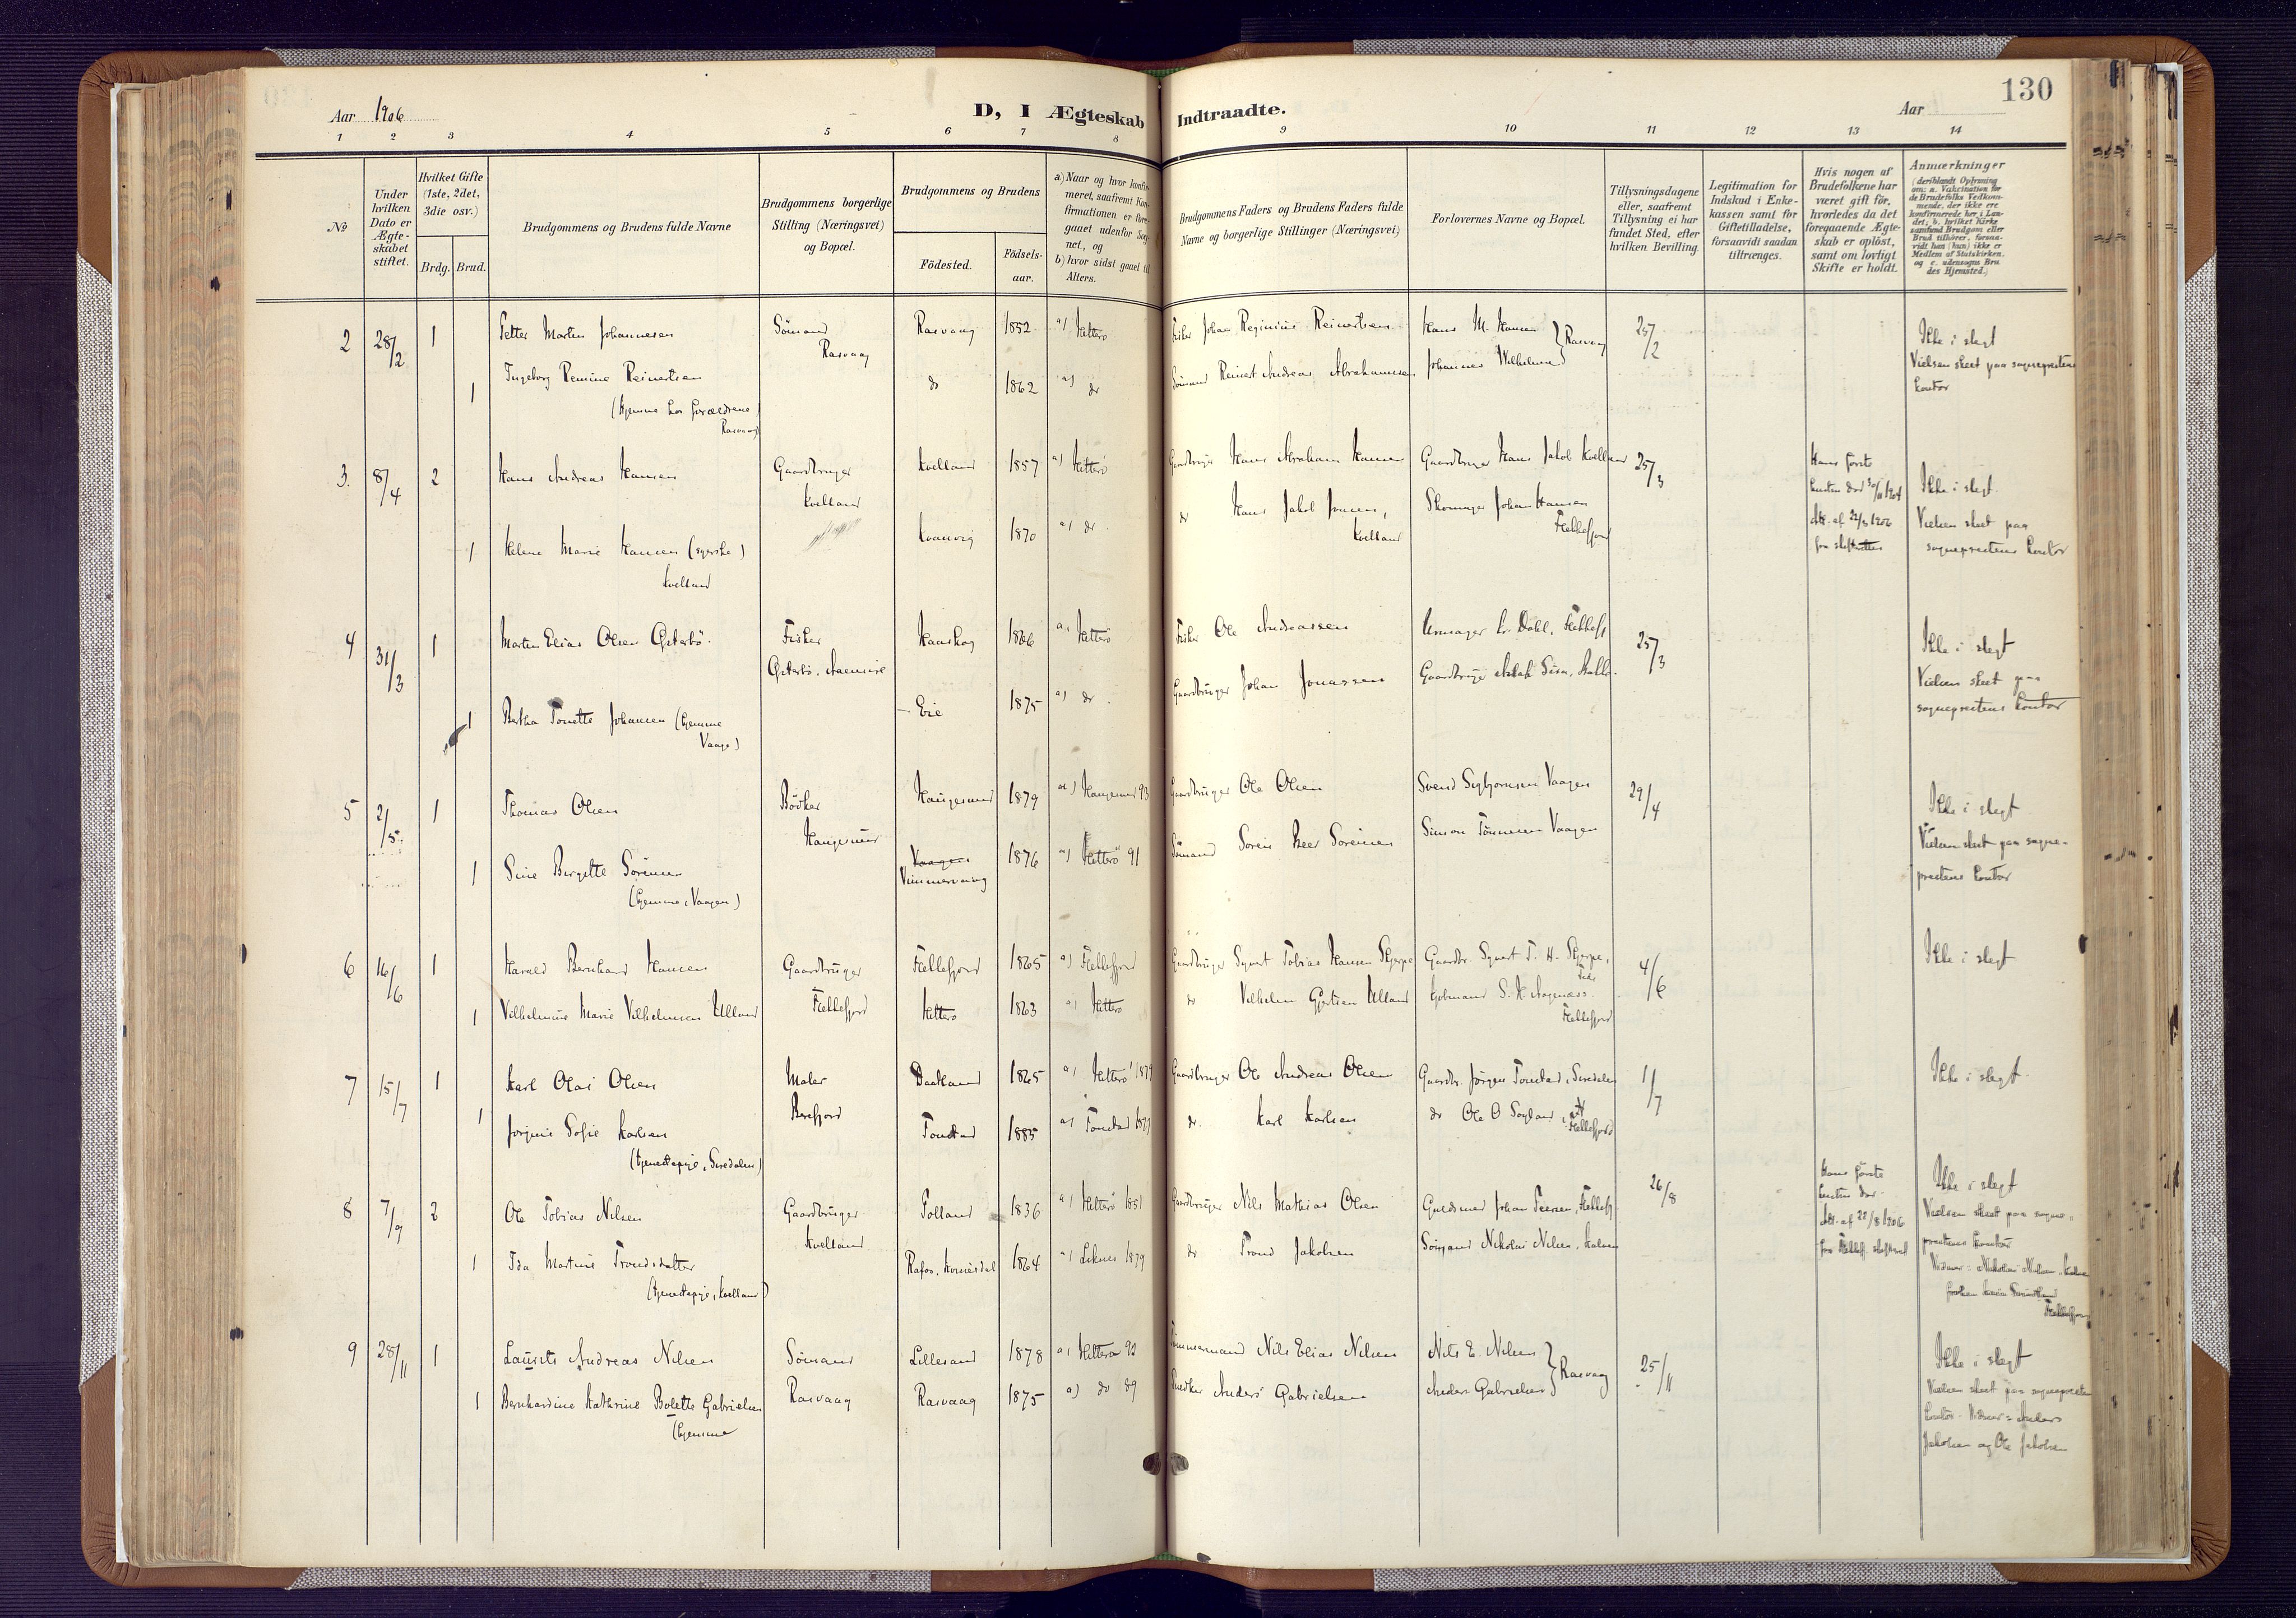 130
Aar 1906
D, I Ægteskab Indtraadte.
Aar
1 2 3 4 5 6 7 8 9 10 11 12 13 14
No
Under hvilken Dato er Ægteskabet stiftet.
Hvilket Gifte (1ste, 2det, 3die osv.)
Brdg. Brud.
Brudgommens og Brudens fulde Navne
Brudgommens borgerlige Stilling (Næringsvei) og Bopæl.
Brudgommens og Brudens
Födested.
Födselsaar.
a) Naar og hvor konfirmeret, saafremt Konfirmationen er foregaaet udenfor Sognet, og
b) hvor sidst gaaet til Alters.
Brudgommens Faders og Brudens Faders fulde Navne og borgerlige Stillinger (Næringsvei)
Forlovernes Navne og Bopæl.
Tillysningsdagene eller, saafremt Tillysning ei har fundet Sted, efter hvilken Bevilling.
Legitimation for Indskud i Enkekassen samt for Giftetilladelse, forsaavidt saadan tiltrænges.
Hvis nogen af Brudefolkene har været gift för, hvorledes da det foregaaende Ægteskab er oplöst, samt om lovligt Skifte er holdt.
Anmærkninger
(deriblandt Oplysning om: a. Vakcination for de Brudefolks Vedkommende, der ikke ere konfirmerede her i Landet; b. hvilket Kirkesamfund Brudgom eller Brud tilhörer, forsaavidt han (hun) ikke er Medlem af Statskirken, og c. udensogns Brudes Hjemsted.)
2 28/2 1 Petter Martin Johannesen Sömand Rasvaag Rasvaag 1852 a) Hitterö Fisker Johan Reginius Reinertsen Hans M. Hansen Johannes Wilhelmsen } Rasvaag 25/2 Ikke i slegt
Vielsen skeet paa sogneprestens kontor
1 Ingeborg Remine Reinertsen (hjemme hos forældrene Rasvaag) do 1862 a) do Sömand Reinert Andreas Abrahamsen
3. 8/4 2 Hans Andreas Hansen Gaardbruger Kvelland Kvelland 1857 a) Hitterö Gaardbruger Hans Abraham Hansen Gaardbruger Hans Jakob Kvelland 25/3 Hans förste hustru död 30/11 1904 Ikke i slegt
1 Helene Marie Hansen (syerske) Kvelland Kvanvig 1870 a) do. do Hans Jakob Jonsen, Kvelland Skomager Johan Hansen Flekkefjord att. af 22/3 1906 fra skifteretten Vielsen skeet paa sogneprestens kontor
4 31/3 1 Morten Elias Olsen Österbö Fisker Österbö, Aaensire Hanskog 1866 a) Hitterö Fisker Ole Andreassen Urmager Dahl, Flekkefj 25/3 Ikke i slegt
1 Bertha Tonette Johansen (hjemme Vaage) Eie 1875 a) do. Gaardbruger Johan Jonassen Gaardbruger Vielsen skeet paa sogneprestens kontor
5 2/5 1 Thomas Olsen Bödker Haugesund Haugesund 1879 a) Haugesund 93 Gaardbruger Ole Olsen Svend Sigbjornsen Vaagen 29/4 Ikke i slegt
1 Sine Birgitte Sörensen (hjemme, Vaagen) Vaagen Vimmervaag 1876 a) Hitterö 91 Sömand Sören Peer Sörensen Simon Tönnesen Vaagen Vielsen skeet paa sogneprestens kontor
6 16/6 1 Harald Bernhard Hansen Gaardbruger Flekkefjord Flekkefjord 1865 a) Flekkefjord Gaardbruger Sigvart Tobias Hansen Skjerpe Gaardbr. Sigvart T. H. Skjerpe, 4/6 Ikke i slegt
1 Vilhelmine Marie Vilhelmsen Ulland Hitterö 1863 a) Hitterö do Vilhelm Gjertsen Ulland Kjöbmand S. K. Aagenæs Flekkefjord
7 15/7 1 Karl Olai Olsen Maler Berefjord Daatland 1865 a) Hitterö 1879 Gaardbruger Ole Andreas Olsen Gaardbr. Jörgen Tonstad, Siredalen 1/7 Ikke i slegt
1 Jörgine Sofie Karlsen (tjenestepige, Siredalen) Tonstad 1885 a) Tonstad do. Karl Karlsen do Ole O Flekkefjord
8 7/9 2 Ole Tobias Nilsen Gaardbruger Kvelland Tolland 1836 a) Hitterö 1851 Gaardbruger Nils Mathias Olsen Guldsmed Johan Flekkefj 26/8 Hans förste hustru död. Ikke i slegt
1 Ida Martine Trondsdatter (tjenestepige, Kvelland) Rafos, Kvinesdal 1864 a) Liknes 1879 do Trond Jakobsen Sömand Nikolai Nilsen att. af 22/8 1906 fra Flekkef. skifteret Vielsen skeet paa sogneprestens kontor
Vidner: Nikolai Nilsen Flekkefjord
9 28/11 1 Laurits Andreas Nilsen Sömand Rasvaag Lillesand 1878 a) Hitterö 92 Tömmermand Nils Elias Nilsen Nils E. Nilsen Anders Gabrielsen } Rasvaag 25/11 Ikke i slegt
1 Bernhardine Kathrine Bolette Gabrielsen (hjemme Rasvaag 1875 a) do 89 Snedker Anders Gabrielsen Vielsen skeet paa sogneprestens kontor. Vidner: Anders Jakobsen og Ole Jakobsen